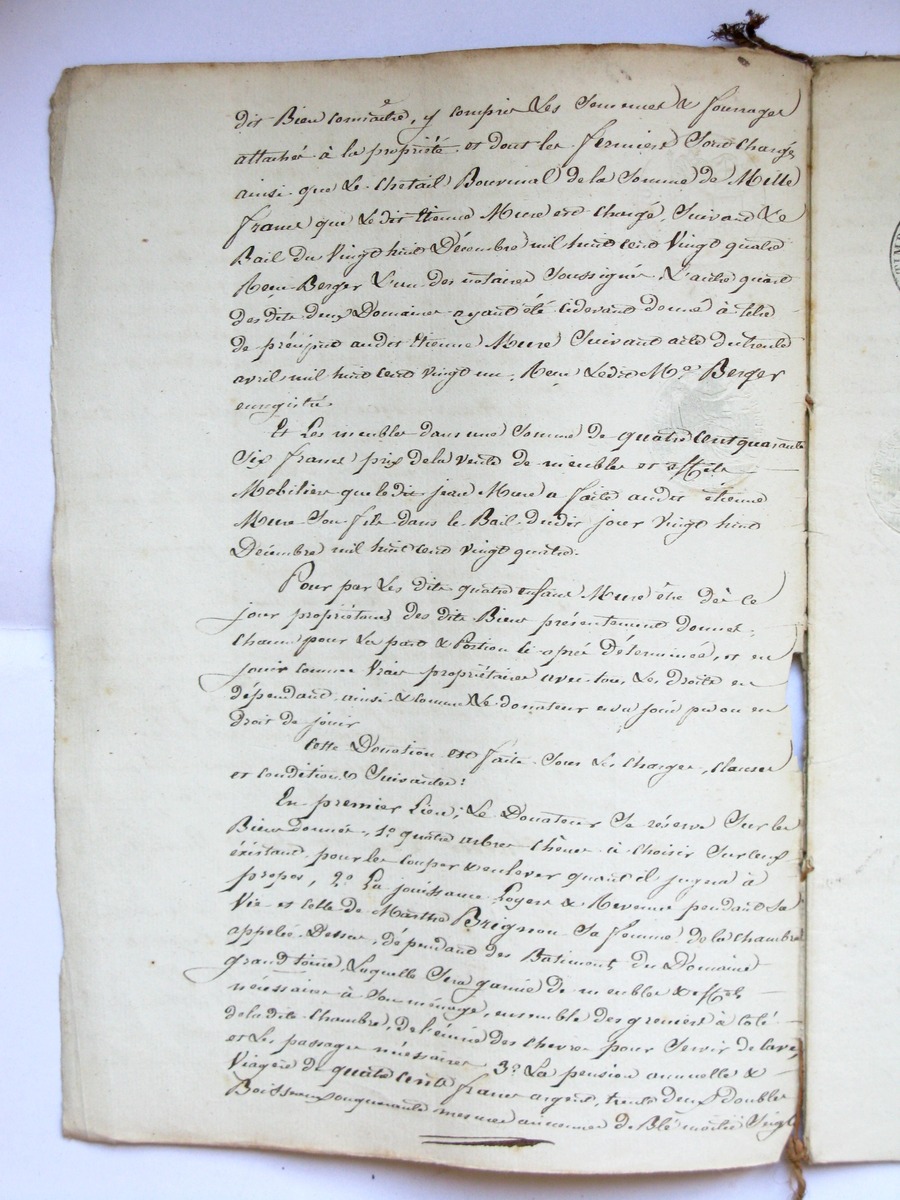 dit Bienconnaitre, y compris les Semences & fourrages
attachés à la propriété et dont les fermiers Sont Chargés
ainsi que Le Chetail Bourvinal de la Somme de Mille
francs que Ledit Etienne Mure est chargé, Suivant Le
Bail du Vingt huit Décembre mil huit cent Vingt quatre
Reçu Berger L'un des notaires Soussignés. L'autre quart
des dits deux Domaines ayant été cidevant donné à titre
de préciput audit Etienne Mure Suivant acte du trente
avril mil huit cent vingt un, Reçu Ledit Me. Berger
enregistré.
Et Les meubles dans une Somme de quatre Cent quarante
Six francs prix de la vente de meubles et effets
Mobiliers que le dit jean Mure a faite audit étienne
Mure Son fils dans le Bail dudit jour vingt huit
Décembre mil huit cent vingt quatre.
Pour par Les dits quatre enfans Mure être dès ce
jour propriétaires des dits Biens présentement donnés,
Chacun pour La part & Portion ci-après déterminées, et en
jouir comme Vrais propriétaires avec tous Les droits en
dépendant ainsi & comme Le donateur en a joui pu ou en
droit de jouir
Cette Donation est faite Sous Les Charges, clauses
et conditions Suivantes:
En premier Lieu; Le Donateur Se réserve Sur les
Biens donnés, 1o. quatre arbres Chênes à choisir Sur ceux
éxistant pour les couper & enlever quand il jugera à
propos, 2o. La jouissance Loyers & Revenus pendant Sa
Vie et celle de Marthe Brignon Sa femme de la chambre
appelée Dessus, dépendant des Batiments du Domaine
grand tôme, Laquelle Sera garnie de meubles & effets
nécéssaires à Son ménage, ensemble des greniers à coté
de la dite Chambre, de l'écurie des Chevres pour Servir de cave,
et Les passages nécéssaires 3o. La pension annuelle &
Viagère de quatre Cents francs argent, trente deux doubles
Boisseaux ou quarante mesures anciennes de Blé moitié Seigle